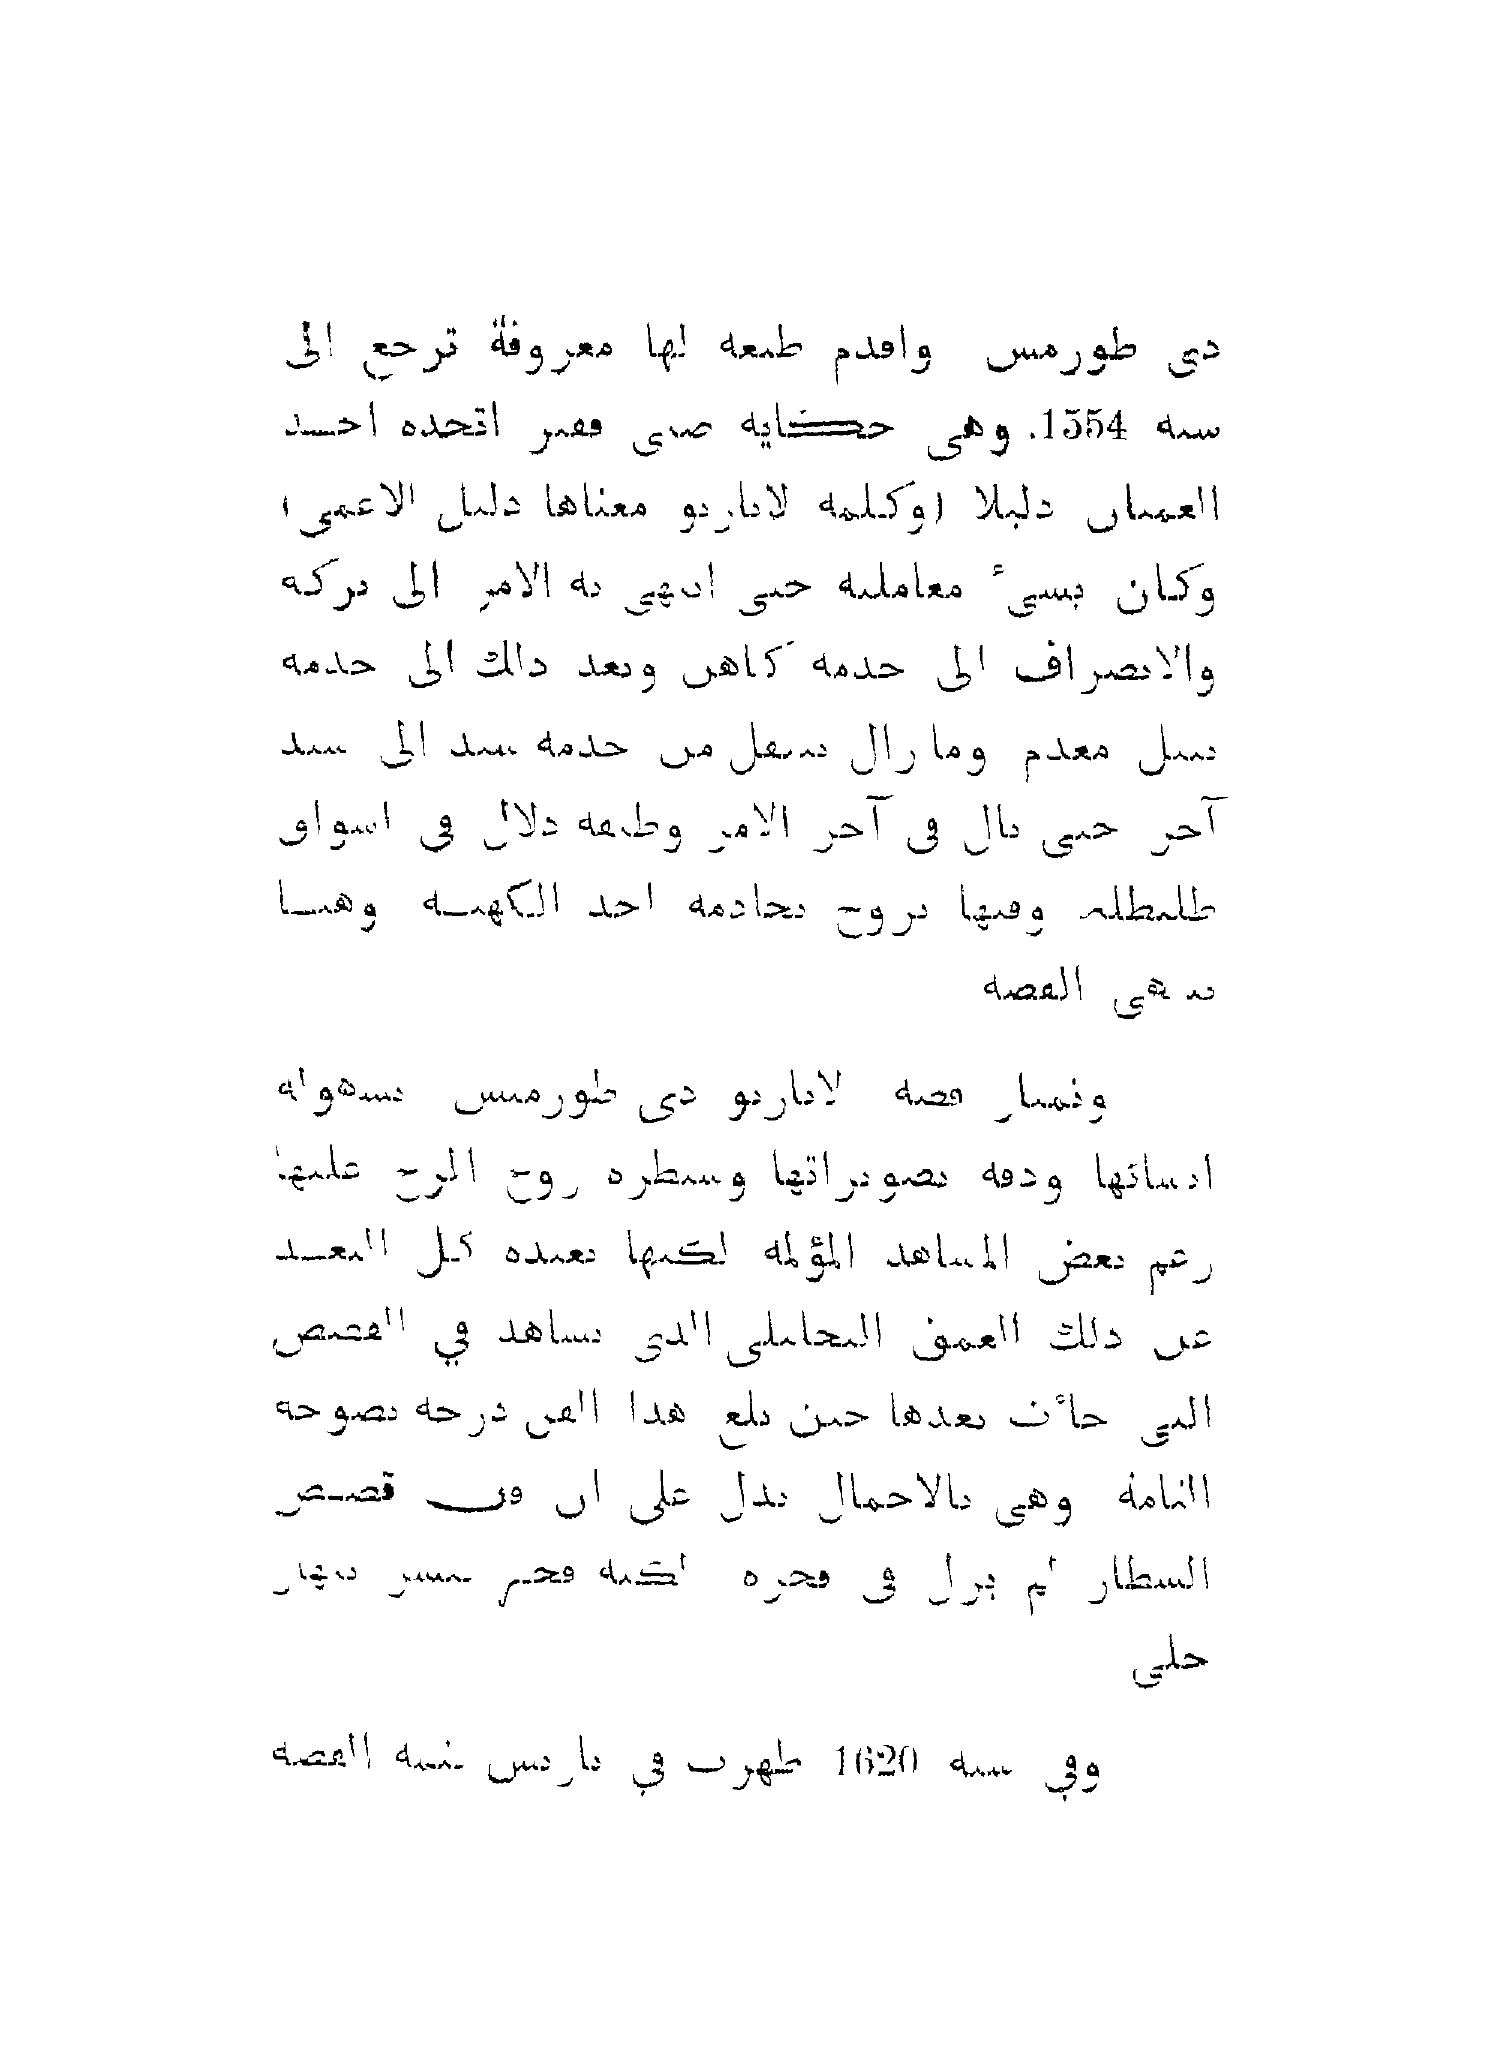 دي طورمس واقدم طبعة لها معروفة ترجع الى
سنة 1554. وهي حكاية صبي فقير اتخذه احد
العميان دليلا (وكلمة لاثاريو معناها دليل الاعمى)
وكان يسيء معاملته حتى انتهى به الامر الى تركه
والانصراف الى خدمة كاهن وبعد ذالك الى خدمة
نبيل معدم وما زال ينتقل من خدمة سيد الى سيد
آخر حتى نال في آخر الامر وظيفة دلال في اسواق
طليطلة وفيها تزوج بخادمة احد الكهنة وهنا
تنتهي القصة
وتمتاز قصة لاثاريو دي طورمس بسهولة
انشائها ودقة تصويراتها وسيطرة روح المرح عليها
رغم بعض المشاهد المؤلمة لكنها بعيدة كل البعد
عن ذلك العمق التحليلي الذي نشاهد في القصص
التي جاءت بعدها حين بلغ هذا الفن درجة نضوجه
التامة وهي بالاجمال تدل على ان فن قصص
الشطار لم يزل في فجره لكنه فجر يبشر بنهار
جلي
وفي سنة 1620 ظهرت في باريس تتمة القصة